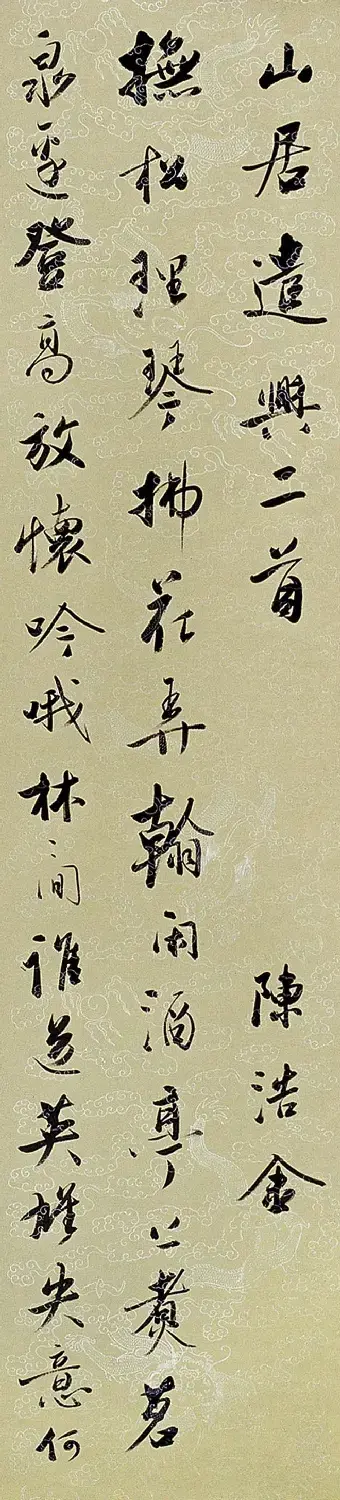 山居遣興二首 陳浩金
撫松理琴拂花弄翰閑酒亭上煑茗
泉邊登高放懷吟哦林間誰道英雄失意何